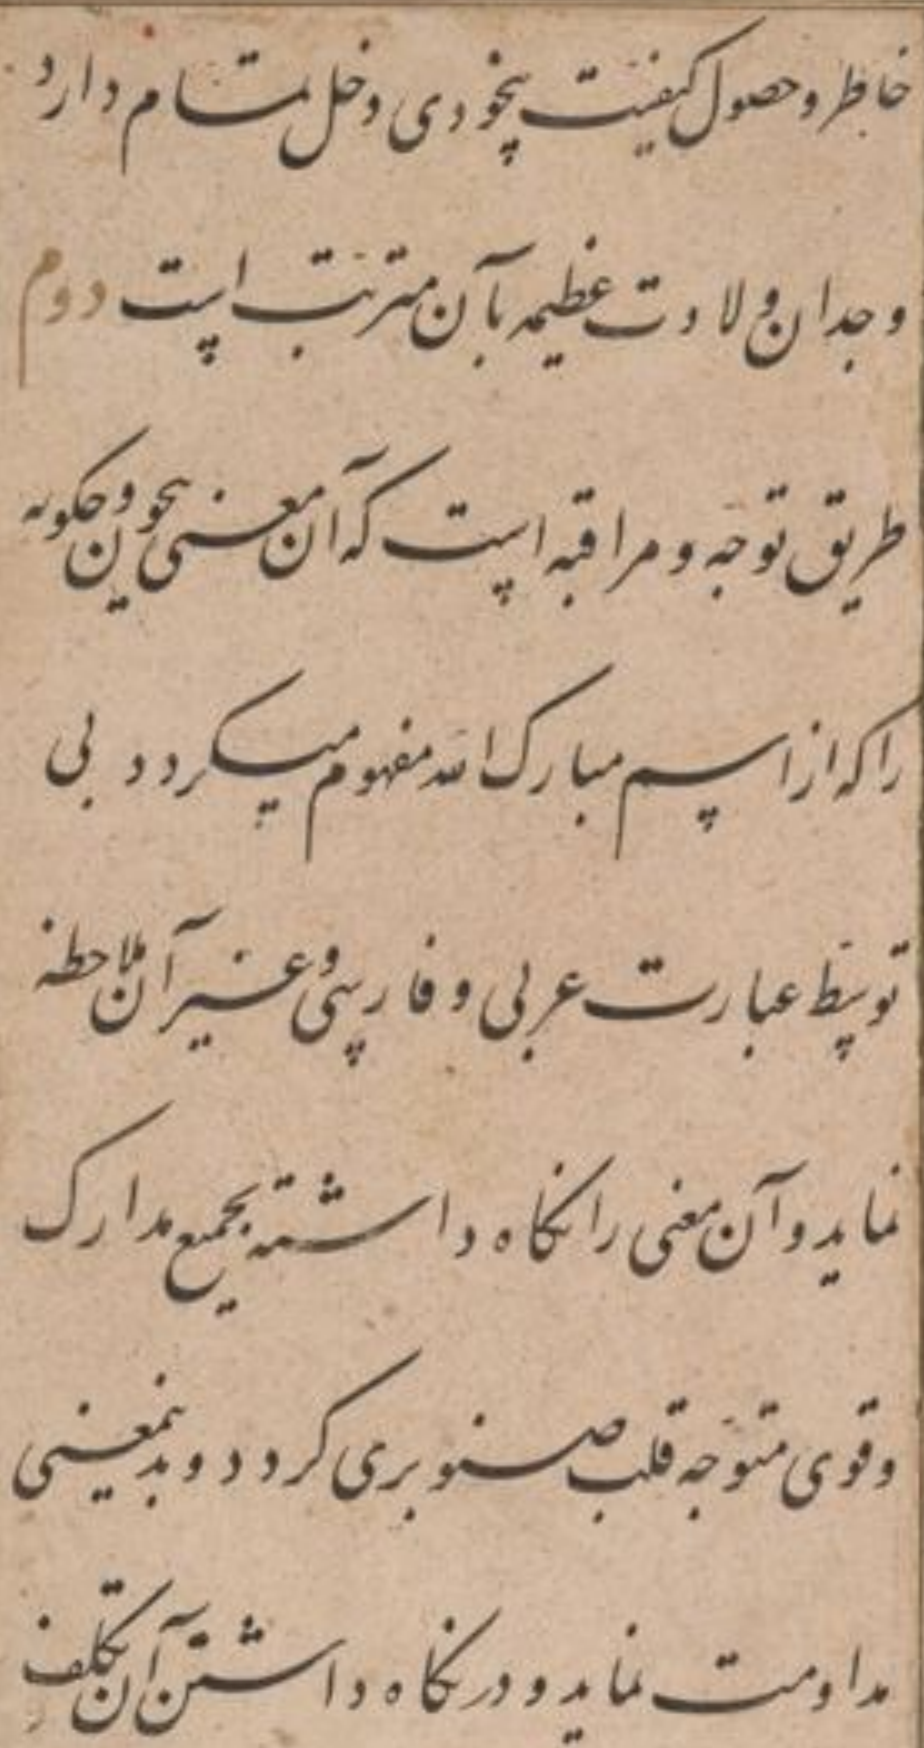 خاطر و حصول کیفیت بیخودی دخل تمام دارد
و جدان و لاوت عظیمه بآن مترتب است دوم
طریق توجه و مراقبه است که آن معنی بیچون و چکونه
را که از اسم مبارک الله مفهوم میکردد بی
توسط عبارت عربی و فارسی و غیر آن ملاحظه
نماید و آن معنی را نکاه داشته بجمیع مدارک
و قوی متوجه قلب صنوبری کردد و بدینمعنی
مداومت نماید و در نکاه داشتن آن تکلف